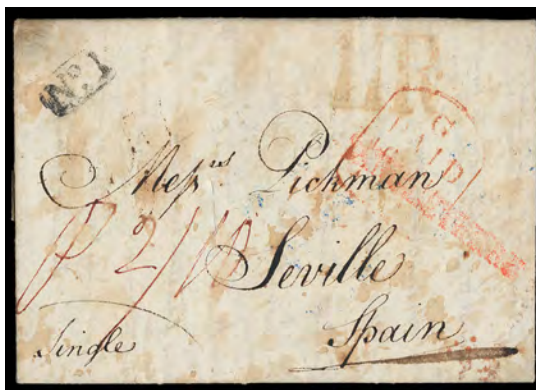 No. 1
11R
G
PAID
Messrs Pickman
P 2/10
Seville
Spain
Single